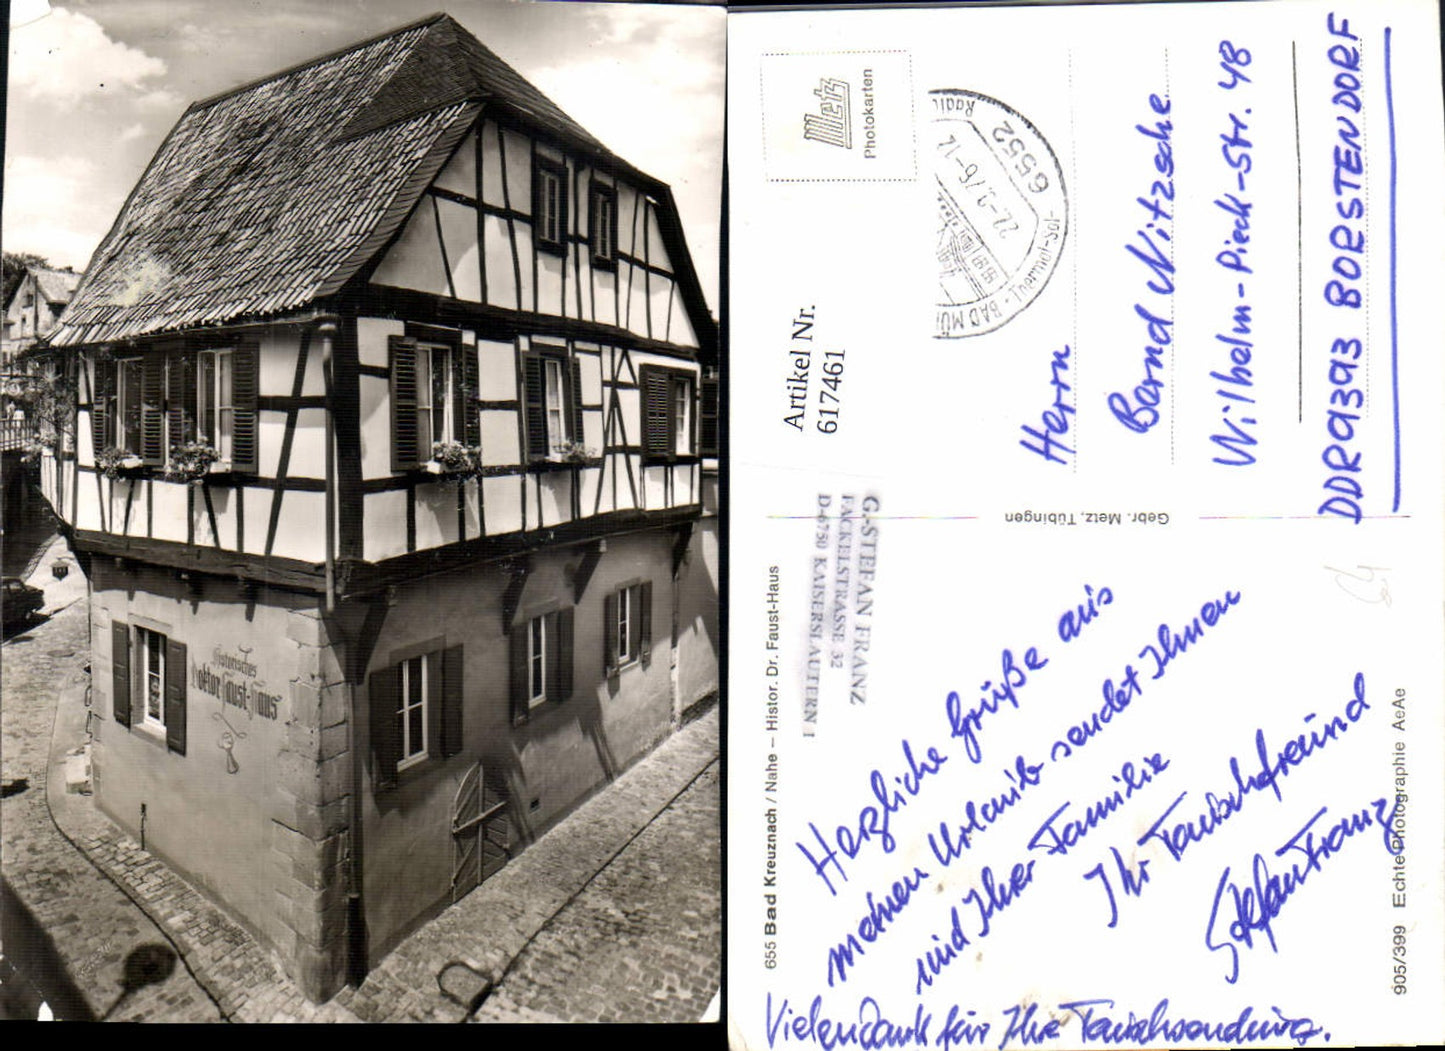 Historisches
Doktor Faust-Haus
Metz
Photokarten
6552
22.-9.76-12
BAD MÜ
Thermal-Sol-
Radi
Artikel Nr.
617461
Herrn
Bernd Nitzsche
Wilhelm-Pieck-Str. 48
DDR 9393 BORSTENDORF
G.-STEFAN FRANZ
FACKELSTRASSE 32
D-6750 KAISERSLAUTERN 1
Gebr. Metz, Tübingen
655 Bad Kreuznach / Nahe – Histor. Dr. Faust-Haus
Herzliche Grüße aus
meinen Urlaub sendet Ihnen
und Ihrer Familie
Ihr Tauschfreund
Stefan Franz
Vielen Dank für Ihre Tauschsendung.
905/399 Echte Photographie AeAe